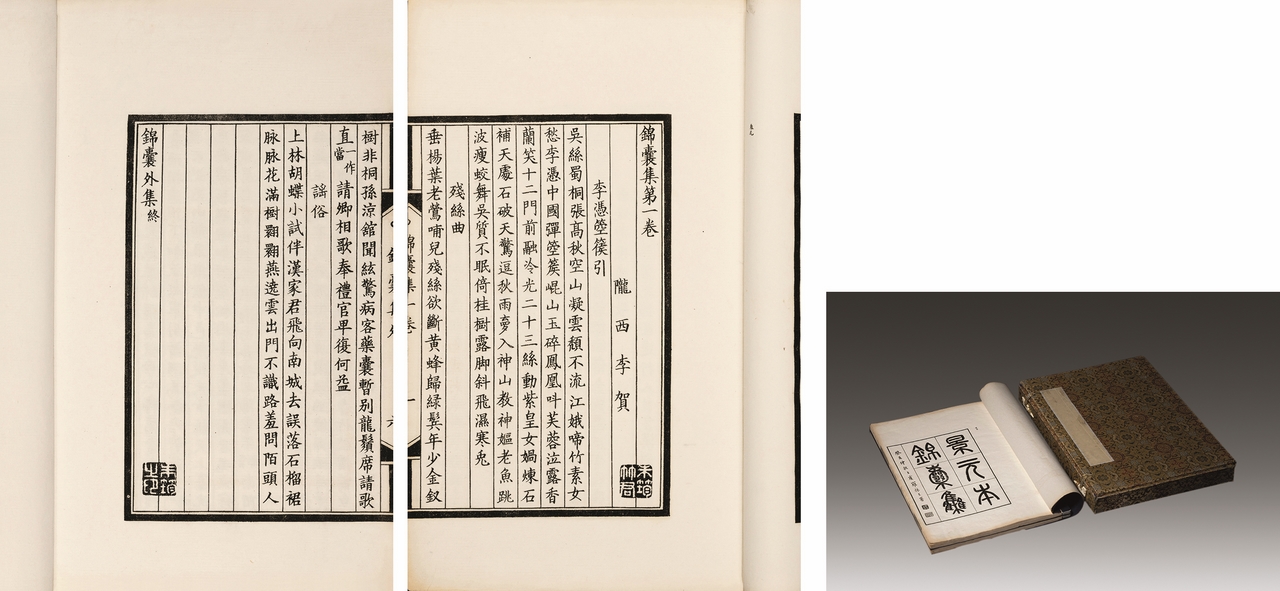 錦囊集第一卷
隴西李賀
李憑箜篌引
吳絲蜀桐張髙秋空山凝雲頹不流江娥啼竹素女
愁李憑中國彈箜篌崐山玉碎鳳凰叫芙蓉泣露香
蘭笑十二門前融冷光二十三絲動紫皇女媧煉石
補天處石破天驚逗秋雨夢入神山教神嫗老魚跳
波瘦蛟舞吳質不眠倚桂樹露脚斜飛濕寒兔
殘絲曲
垂楊葉老鶯哺兒殘絲欲斷黃蜂歸綠鬢年少金釵
錦囊集一卷
樹非桐孫涼館聞絃驚病客藥囊暫別龍鬚席請歌
直一作當請卿相歌奉禮官卑復何益
謠俗
上林胡蝶小試伴漢家君飛向南城去誤落石榴裙
脉脉花滿樹翾翾燕遶雲出門不識路羞問陌頭人
錦囊外集終
景元本
錦囊集